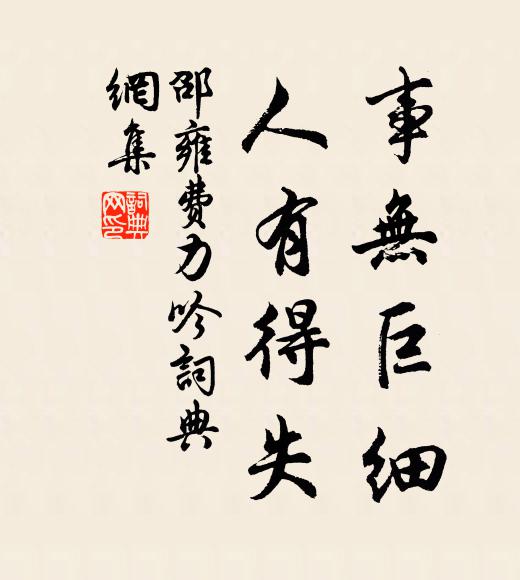 事無巨细
人有得失
邵雍費力吟詞典
網集
詞典
网印